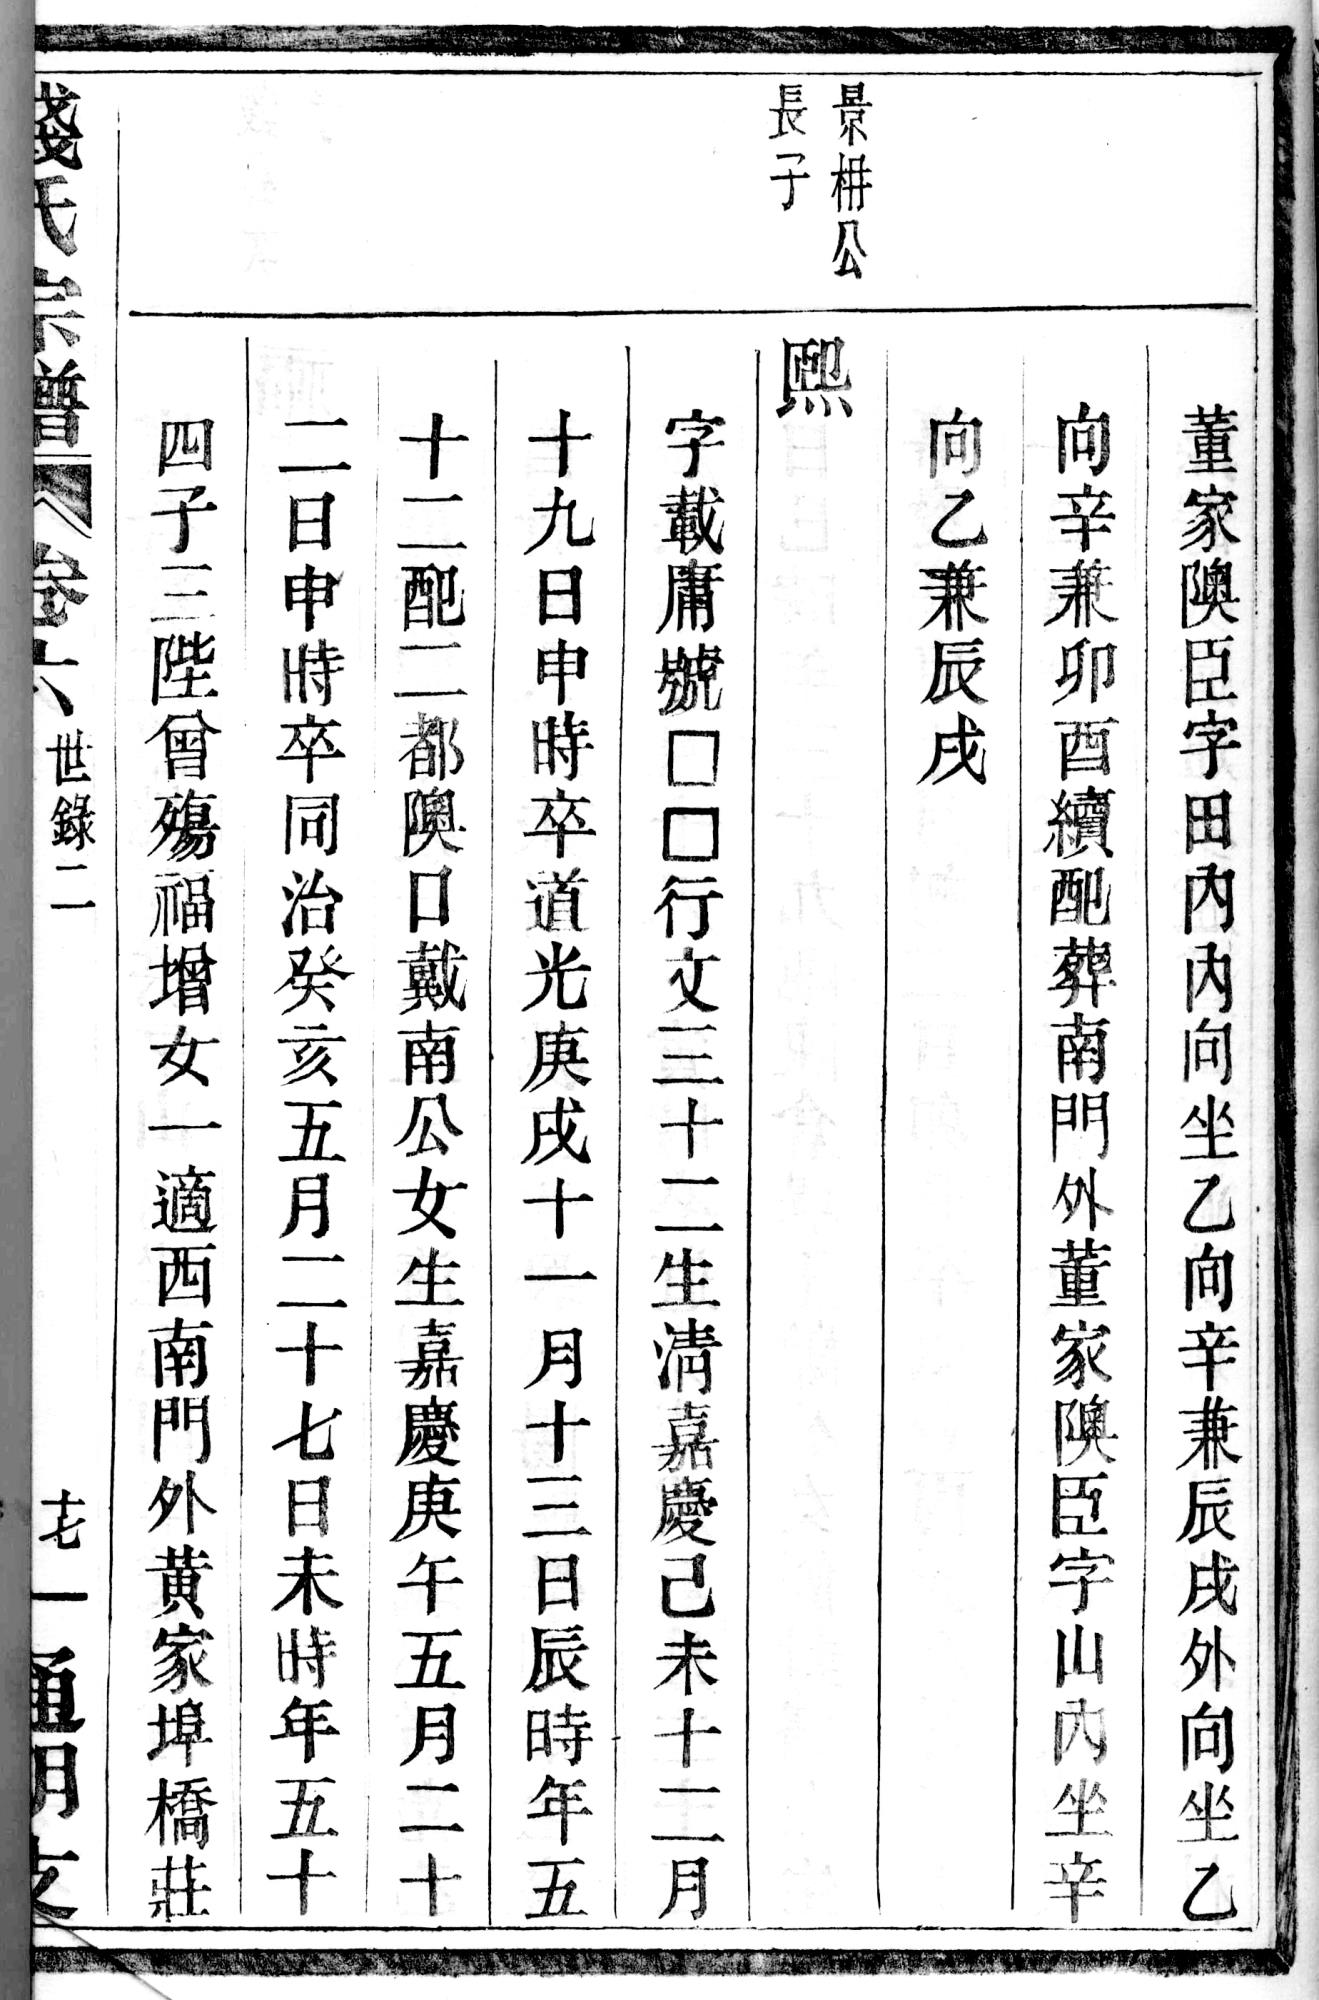 董家隩臣字田內內向坐乙向辛兼辰戌外向坐乙
向辛兼卯酉續配葬南門外董家隩臣字山內坐辛
向乙兼辰戌
景枏公
長子
熙
字載庸號□□行文三十二生淸嘉慶己未十二月
十九日申時卒道光庚戌十一月十三日辰時年五
十二配二都隩口戴南公女生嘉慶庚午五月二十
二日申時卒同治癸亥五月二十七日未時年五十
四子三陛曾殤福增女一適西南門外黄家埠橋莊
錢氏宗譜 卷六 世錄二 十七 一通明支